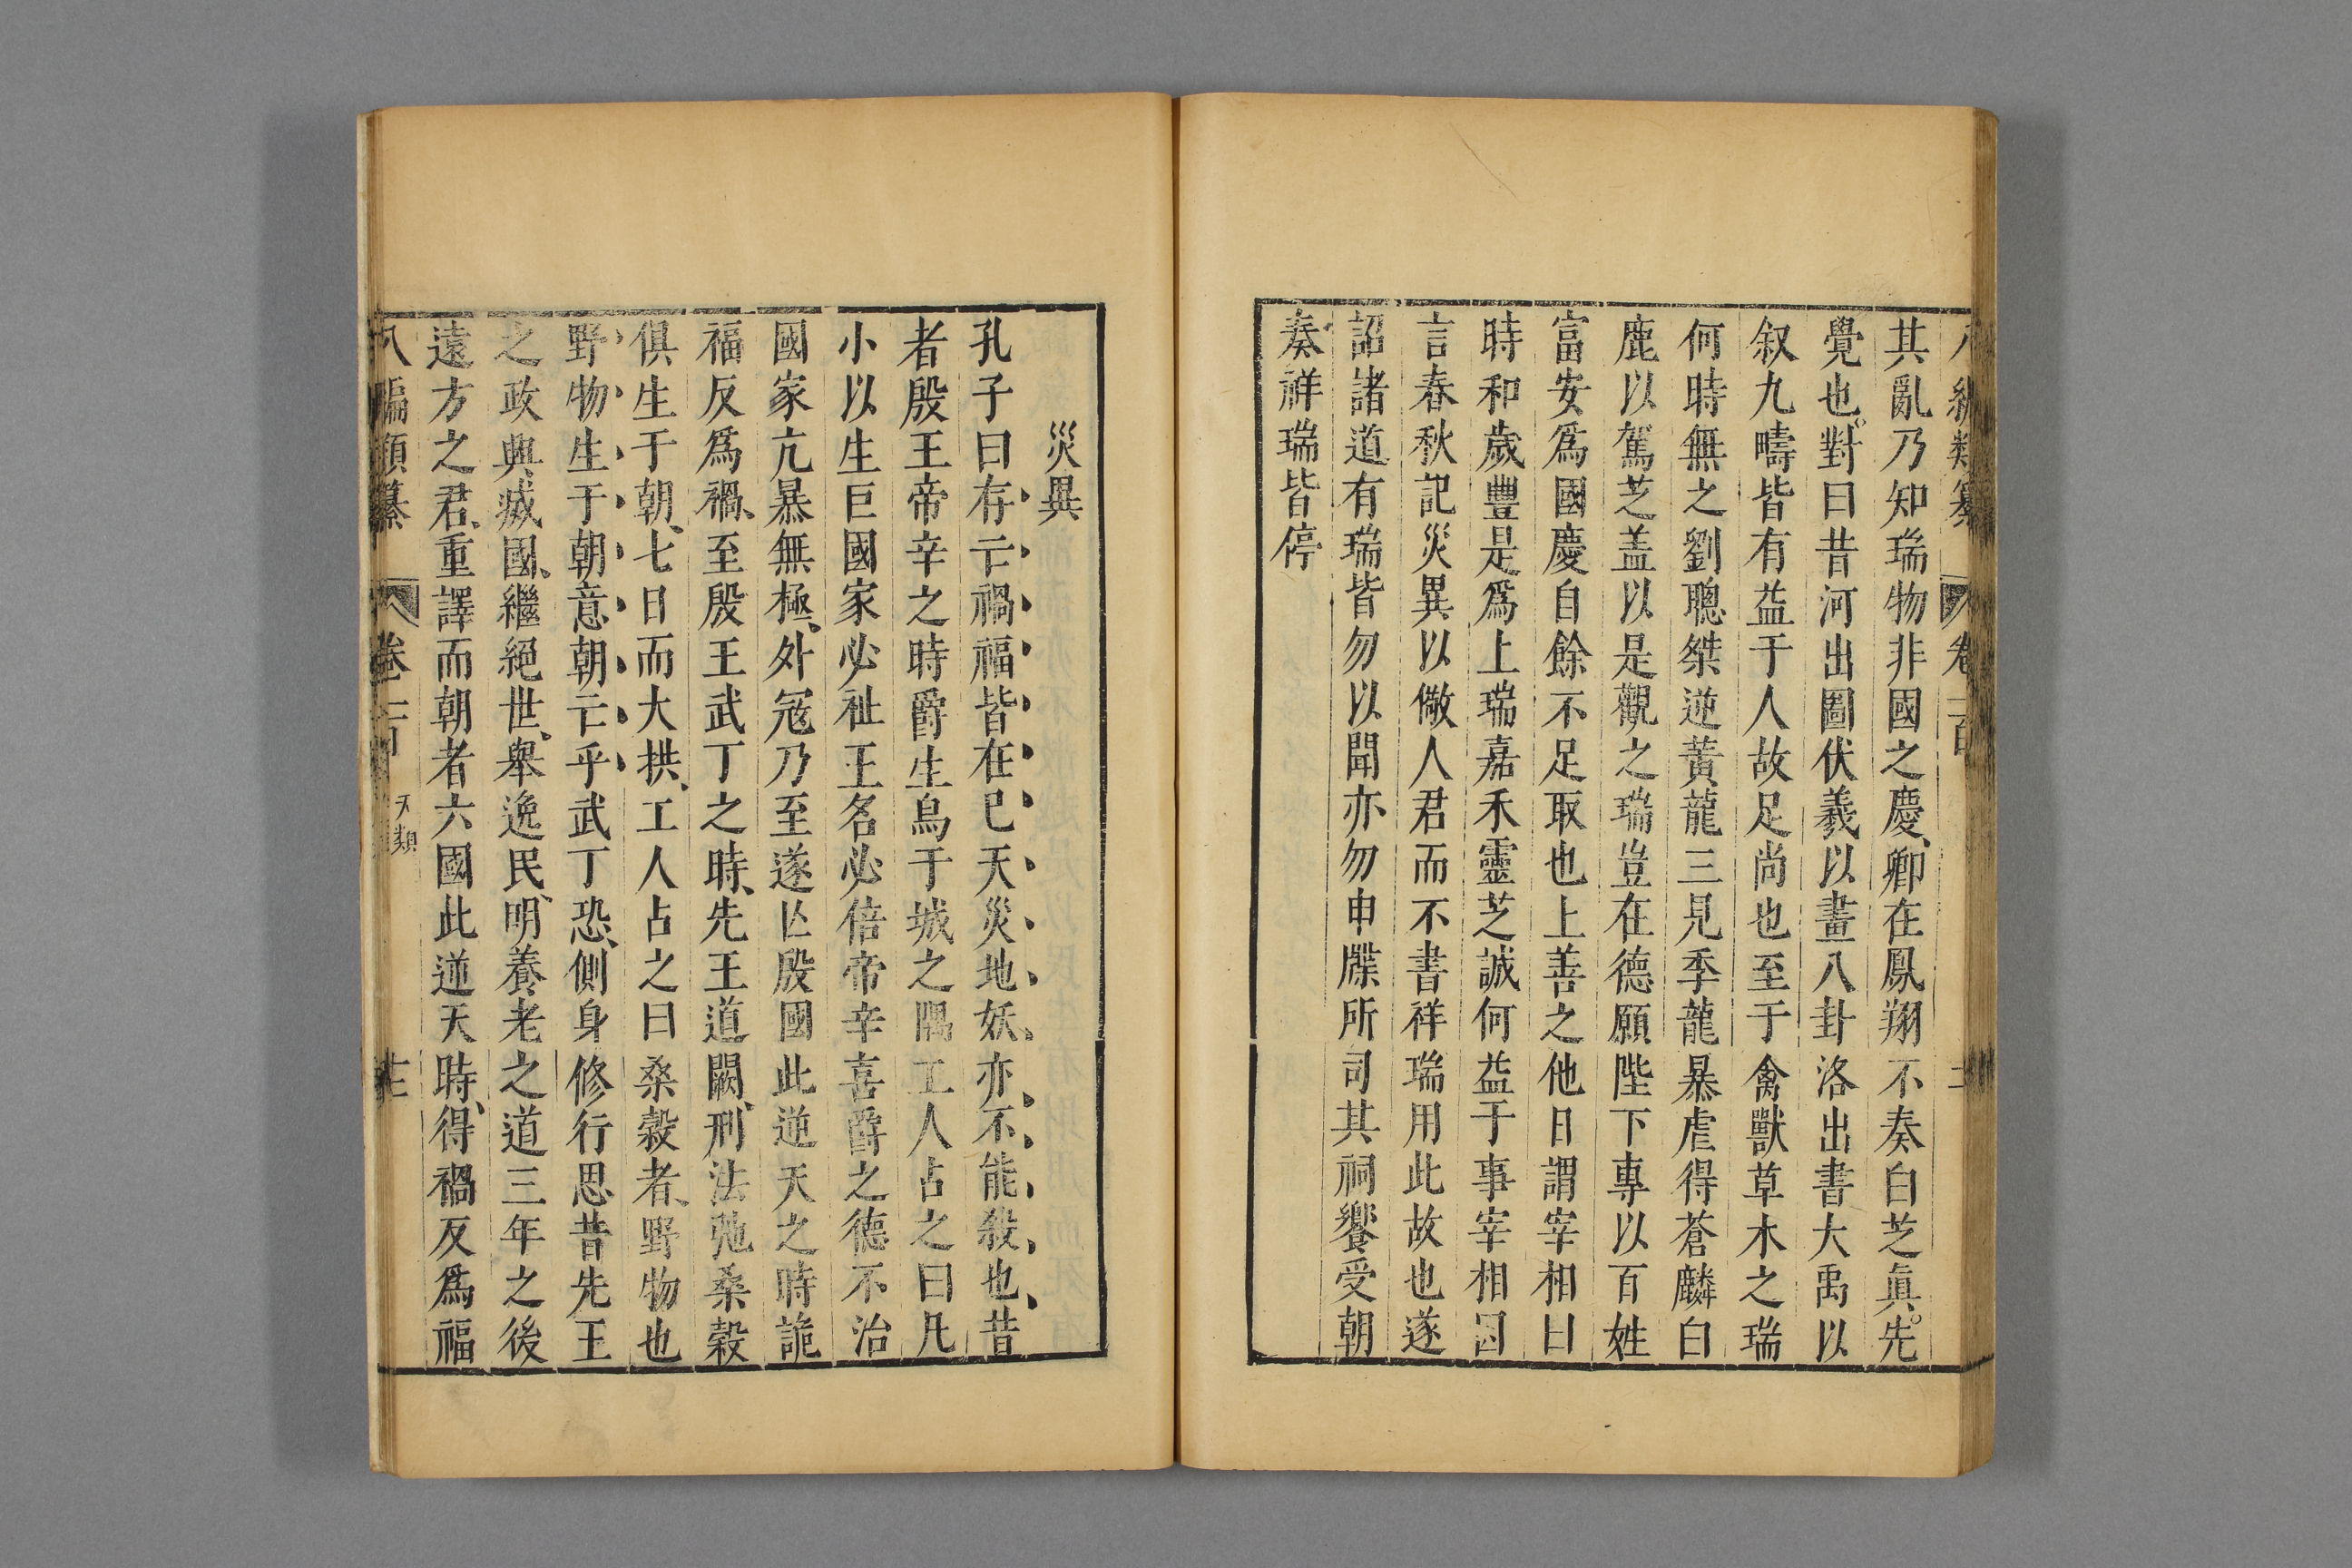 其亂乃知瑞物非國之慶卿在鳳翔不奏白芝眞先
覺也對曰昔河出圖伏羲以畫八卦洛出書大禹以
叙九疇皆有益于人故足尚也至于禽獸草木之瑞
何時無之劉聰桀逆黃龍三見季龍暴虐得蒼麟白
鹿以駕芝盖以是觀之瑞豈在德願陛下專以百姓
富安爲國慶自餘不足取也上善之他日謂宰相曰
時和歲豐是爲上瑞嘉禾靈芝誠何益于事宰相因
言春秋記災異以儆人君而不書祥瑞用此故也遂
詔諸道有瑞皆勿以聞亦勿申牒所司其祠饗受朝
奏祥瑞皆停
災異
孔子曰存亡禍福皆在已天災地妖亦不能殺也昔
者殷王帝辛之時爵生烏于城之隅工人占之曰凡
小以生巨國家必祉王名必倍帝辛喜爵之德不治
國家亢暴無極外冦乃至遂亡殷國此逆天之時詭
福反爲禍至殷王武丁之時先王道闕刑法弛桑榖
俱生于朝七日而大拱工人占之曰桑榖者野物也
野物生于朝意朝亡乎武丁恐側身修行思昔先王
之政興滅國繼絕世舉逸民明養老之道三年之後
遠方之君重譯而朝者六國此逆天時得禍反爲福
八編類纂 卷一百 天類